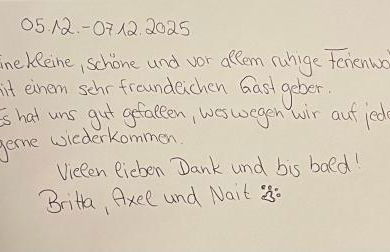 05.12.-07.12.2025
ine kleine, schöne und vor allem ruhige Ferienwo
it einem sehr freundlichen Gastgeber.
s hat uns gut gefallen, weswegen wir auf jede
gerne wiederkommen.
Vielen lieben Dank und bis bald!
Britta, Axel und Nait